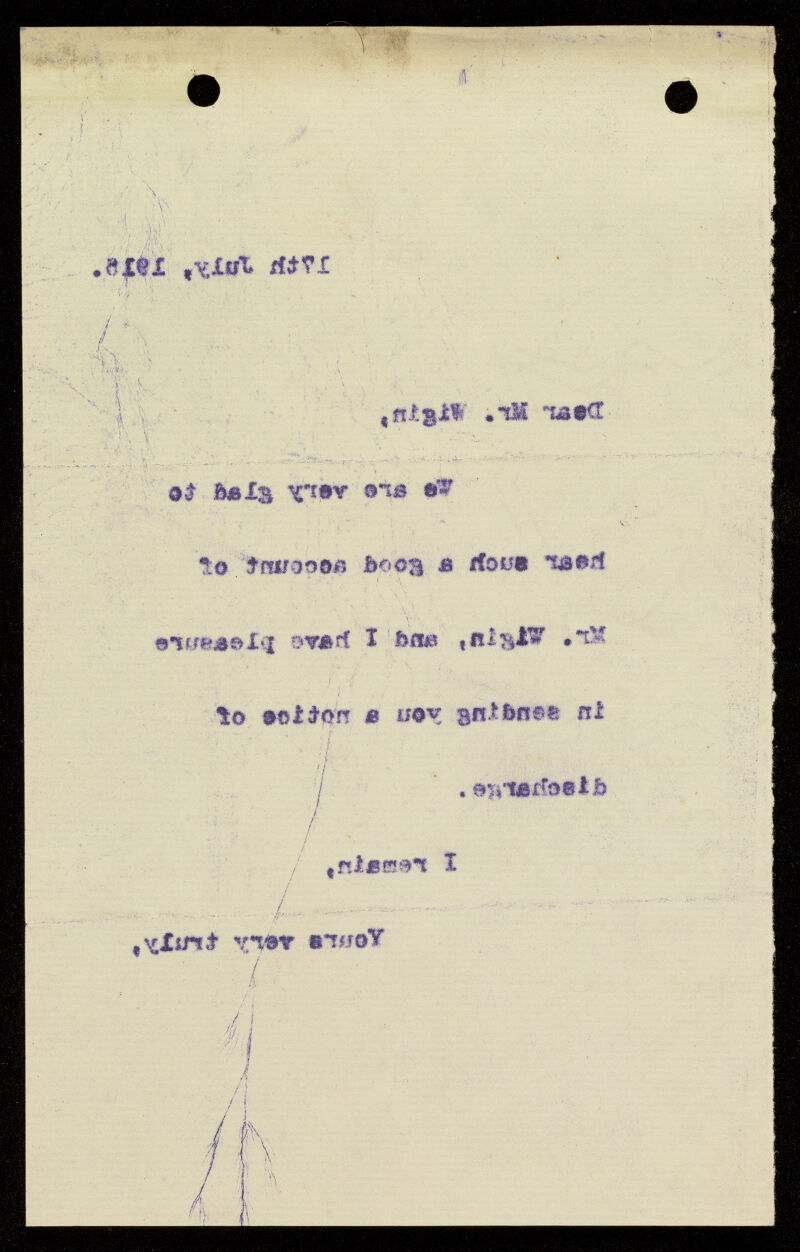 17th July, 1915.
Dear Mr. Wigin,
We are very glad to
hear such a good account of
Mr. Wigin, and I have pleasure
in sending you a notice of
discharge.
I remain,
Yours very truly,